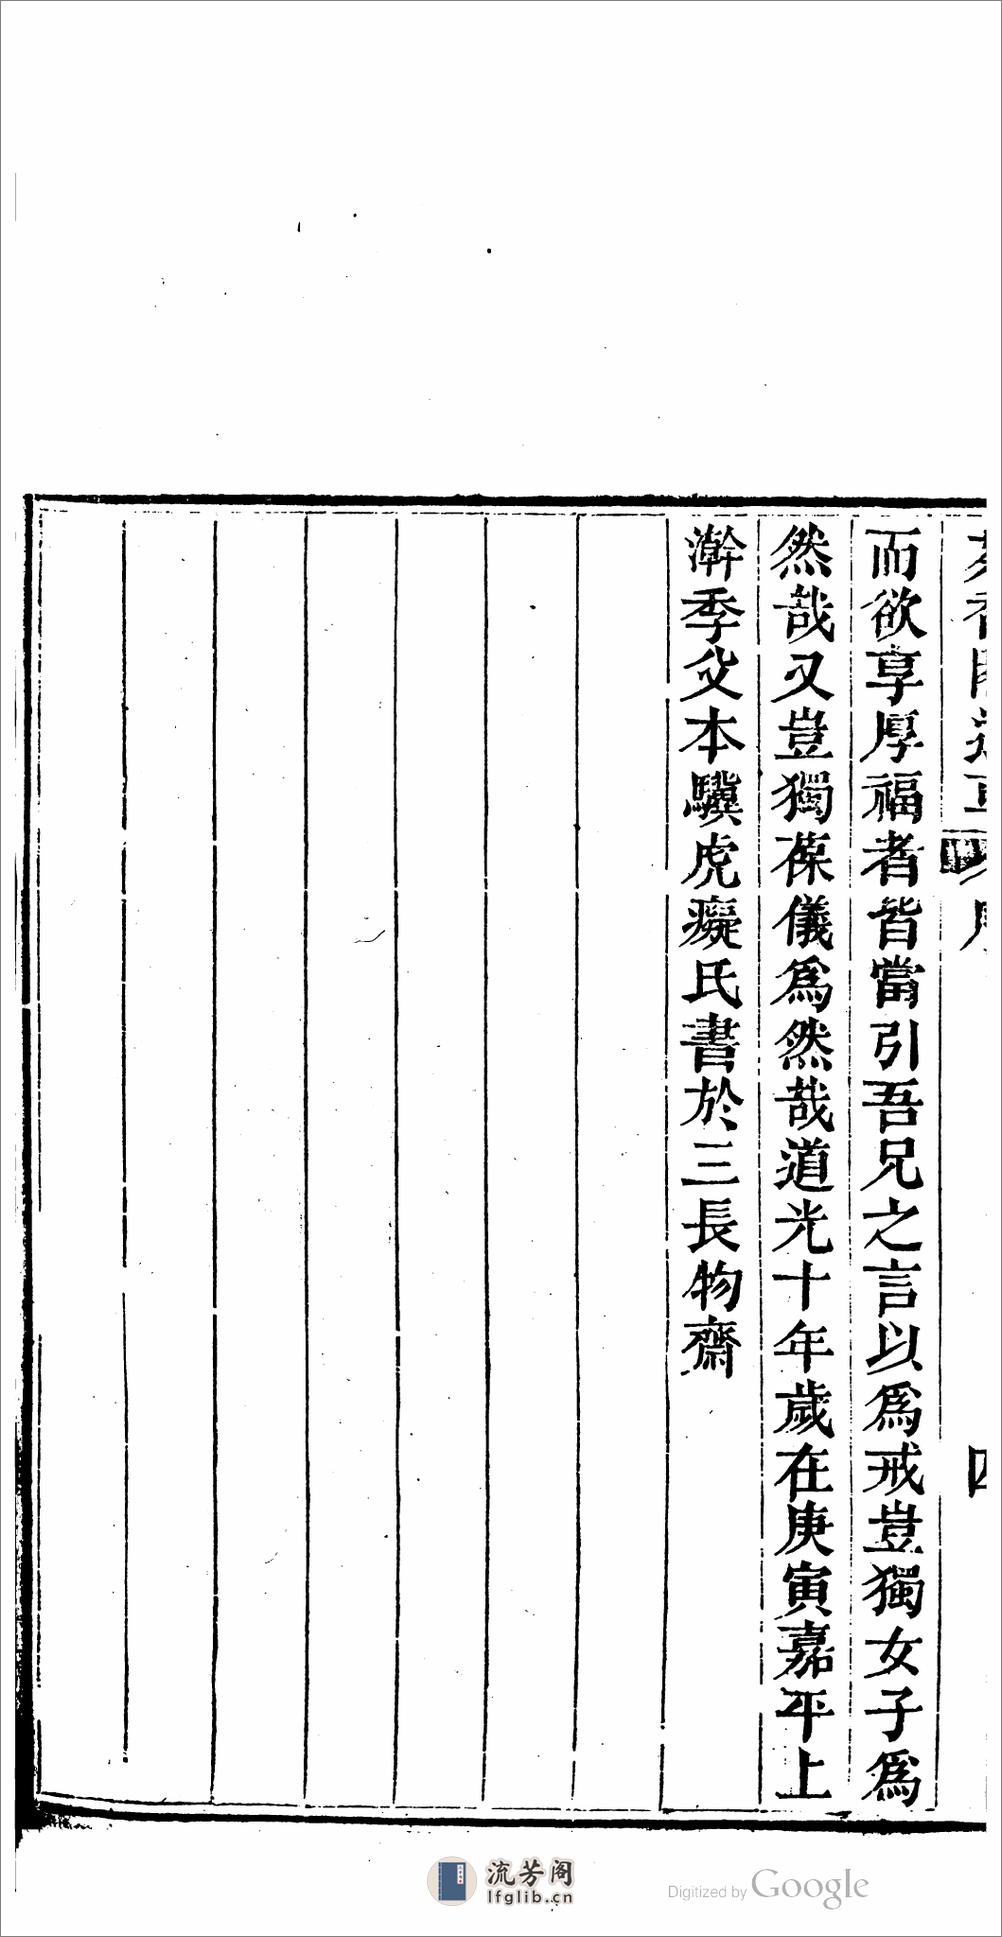 而欲享厚福者皆當引吾兄之言以爲戒豈獨女子爲
然哉又豈獨葆儀爲然哉道光十年歲在庚寅嘉平上
澣季父本驥虎癡氏書於三長物齋
流芳阁
lfglib.cn
Digitized by Google